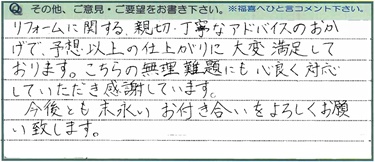 Q その他、ご意見・ご要望をお書き下さい。※福喜へひと言コメント下さい。
リフォームに関する、親切・丁寧なアドバイスのおか
げで、予想以上の仕上がりに大変満足して
おります。こちらの無理難題にも心良く対応
していただき感謝しています。
今後とも末永いお付き合いをよろしくお願
い致します。